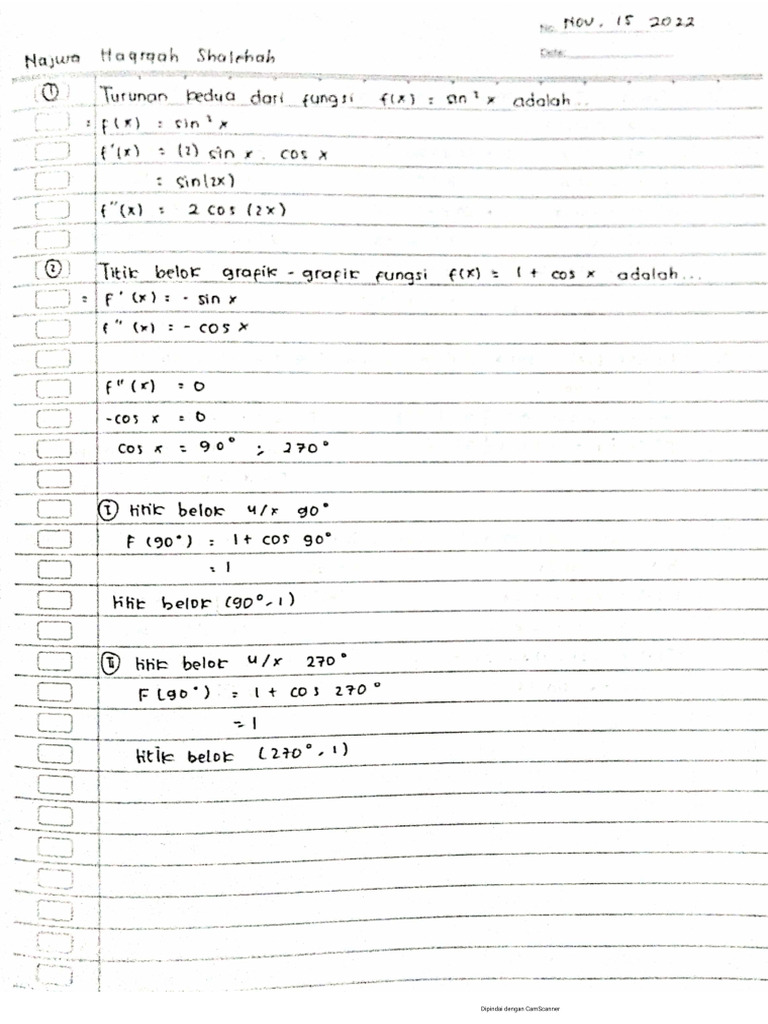 No. Nov. 15 2022
Date:
Najwa Haqqah Shalehah
① Turunan kedua dari fungsi f(x) = sin² x adalah...
= f(x) = sin² x
f'(x) = (2) sin x . cos x
= sin(2x)
f"(x) = 2 cos (2x)
② Titik belok grafik - grafik fungsi f(x) = 1 + cos x adalah...
= F'(x) = - sin x
f"(x) = - cos x
f"(x) = 0
-cos x = 0
cos x = 90° ; 270°
Ⓘ titik belok u/x 90°
F (90°) = 1 + cos 90°
= 1
titik belok (90°, 1)
Ⅱ titik belok u/x 270°
F (90°) = 1 + cos 270°
= 1
titik belok (270°, 1)
Dipindai dengan CamScanner